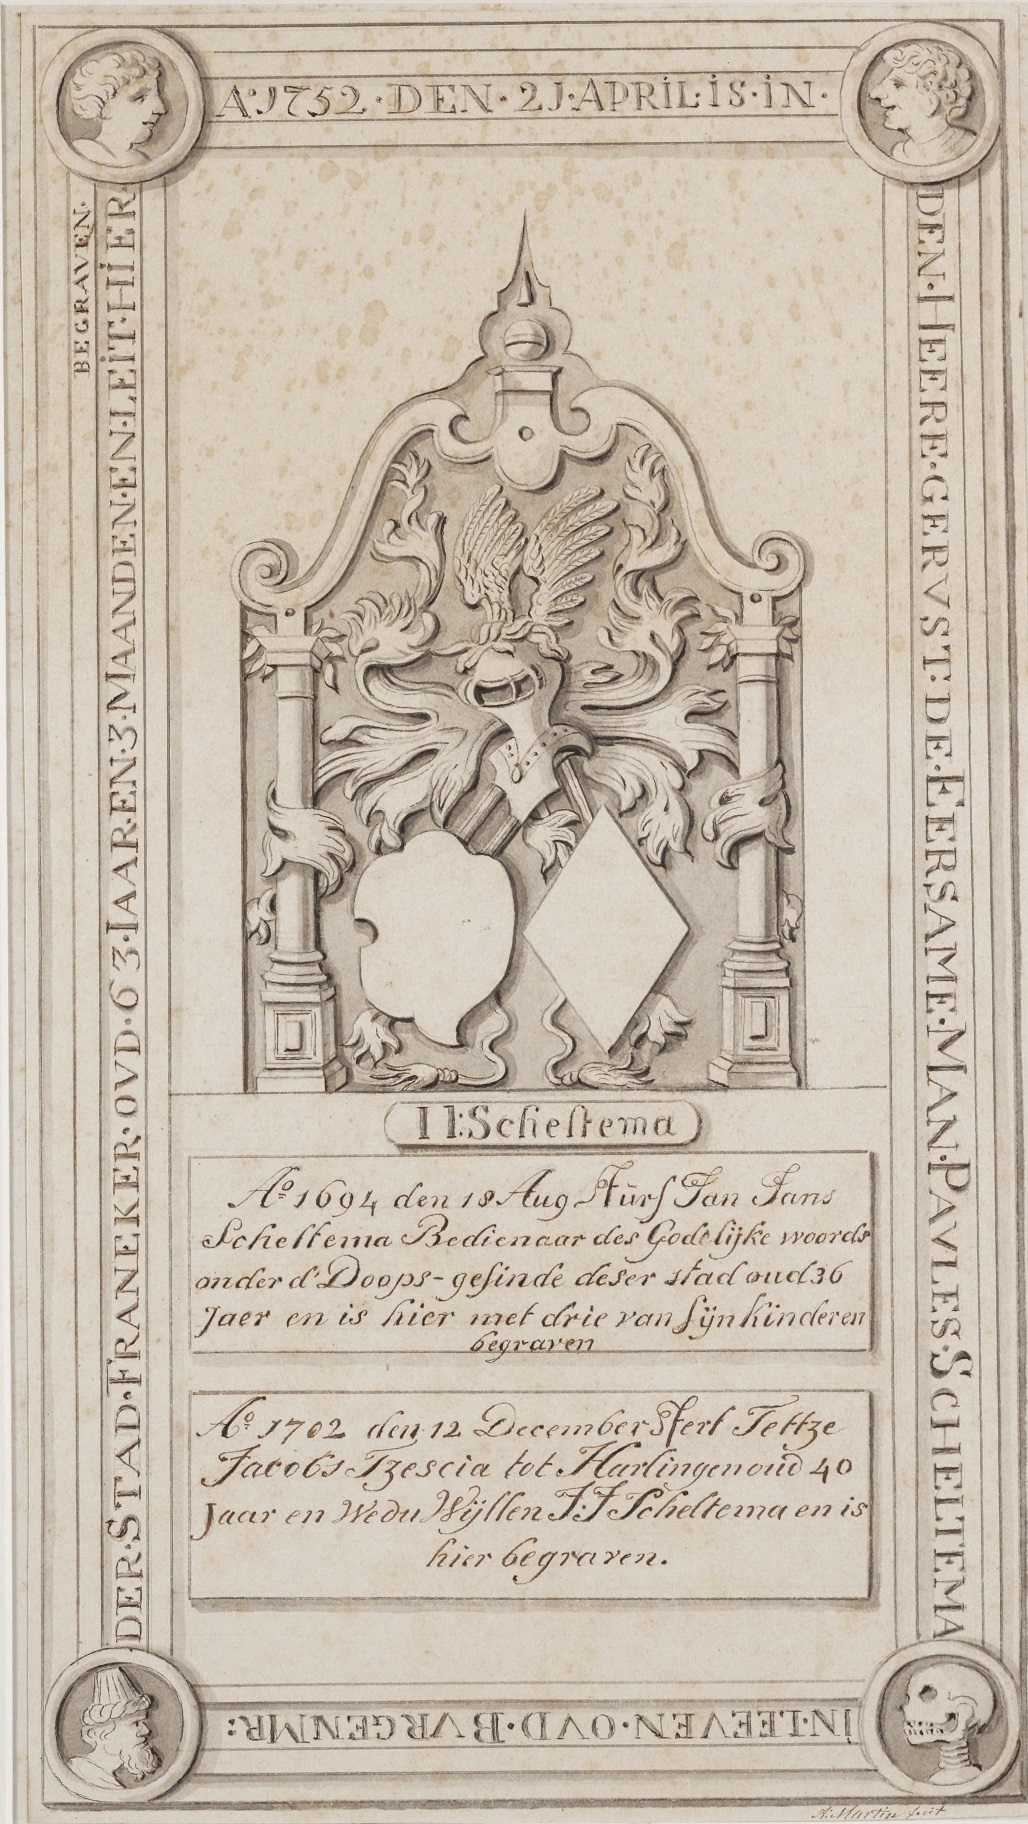 A°·1752·DEN·21·APRIL·IS·IN·
DEN·HEERE·GERVST·DE·EERSAME·MAN·PAVLES·SCHELTEMA
IN·LEEVEN·OVD·BVRGENMR:
DER·STAD·FRANEKER·OVD·63·IAAR·EN·3·MAANDEN·EN·LEIT·HIER
BEGRAVEN·
II:Scheltema
A° 1694 den 18 Aug Sturf Jan Jans
Scheltema Bedienaar des Godlijke woords
onder d' Doops-gesinde deser stad oud 36
Jaer en is hier met drie van sijn kinderen
begraven
A° 1702 den 12 December Sterf Tettze
Jacobs Tzescia tot Harlingen oud 40
Jaar en Wedu Wijllen J:J Scheltema en is
hier begraven.
A: Martin fecit